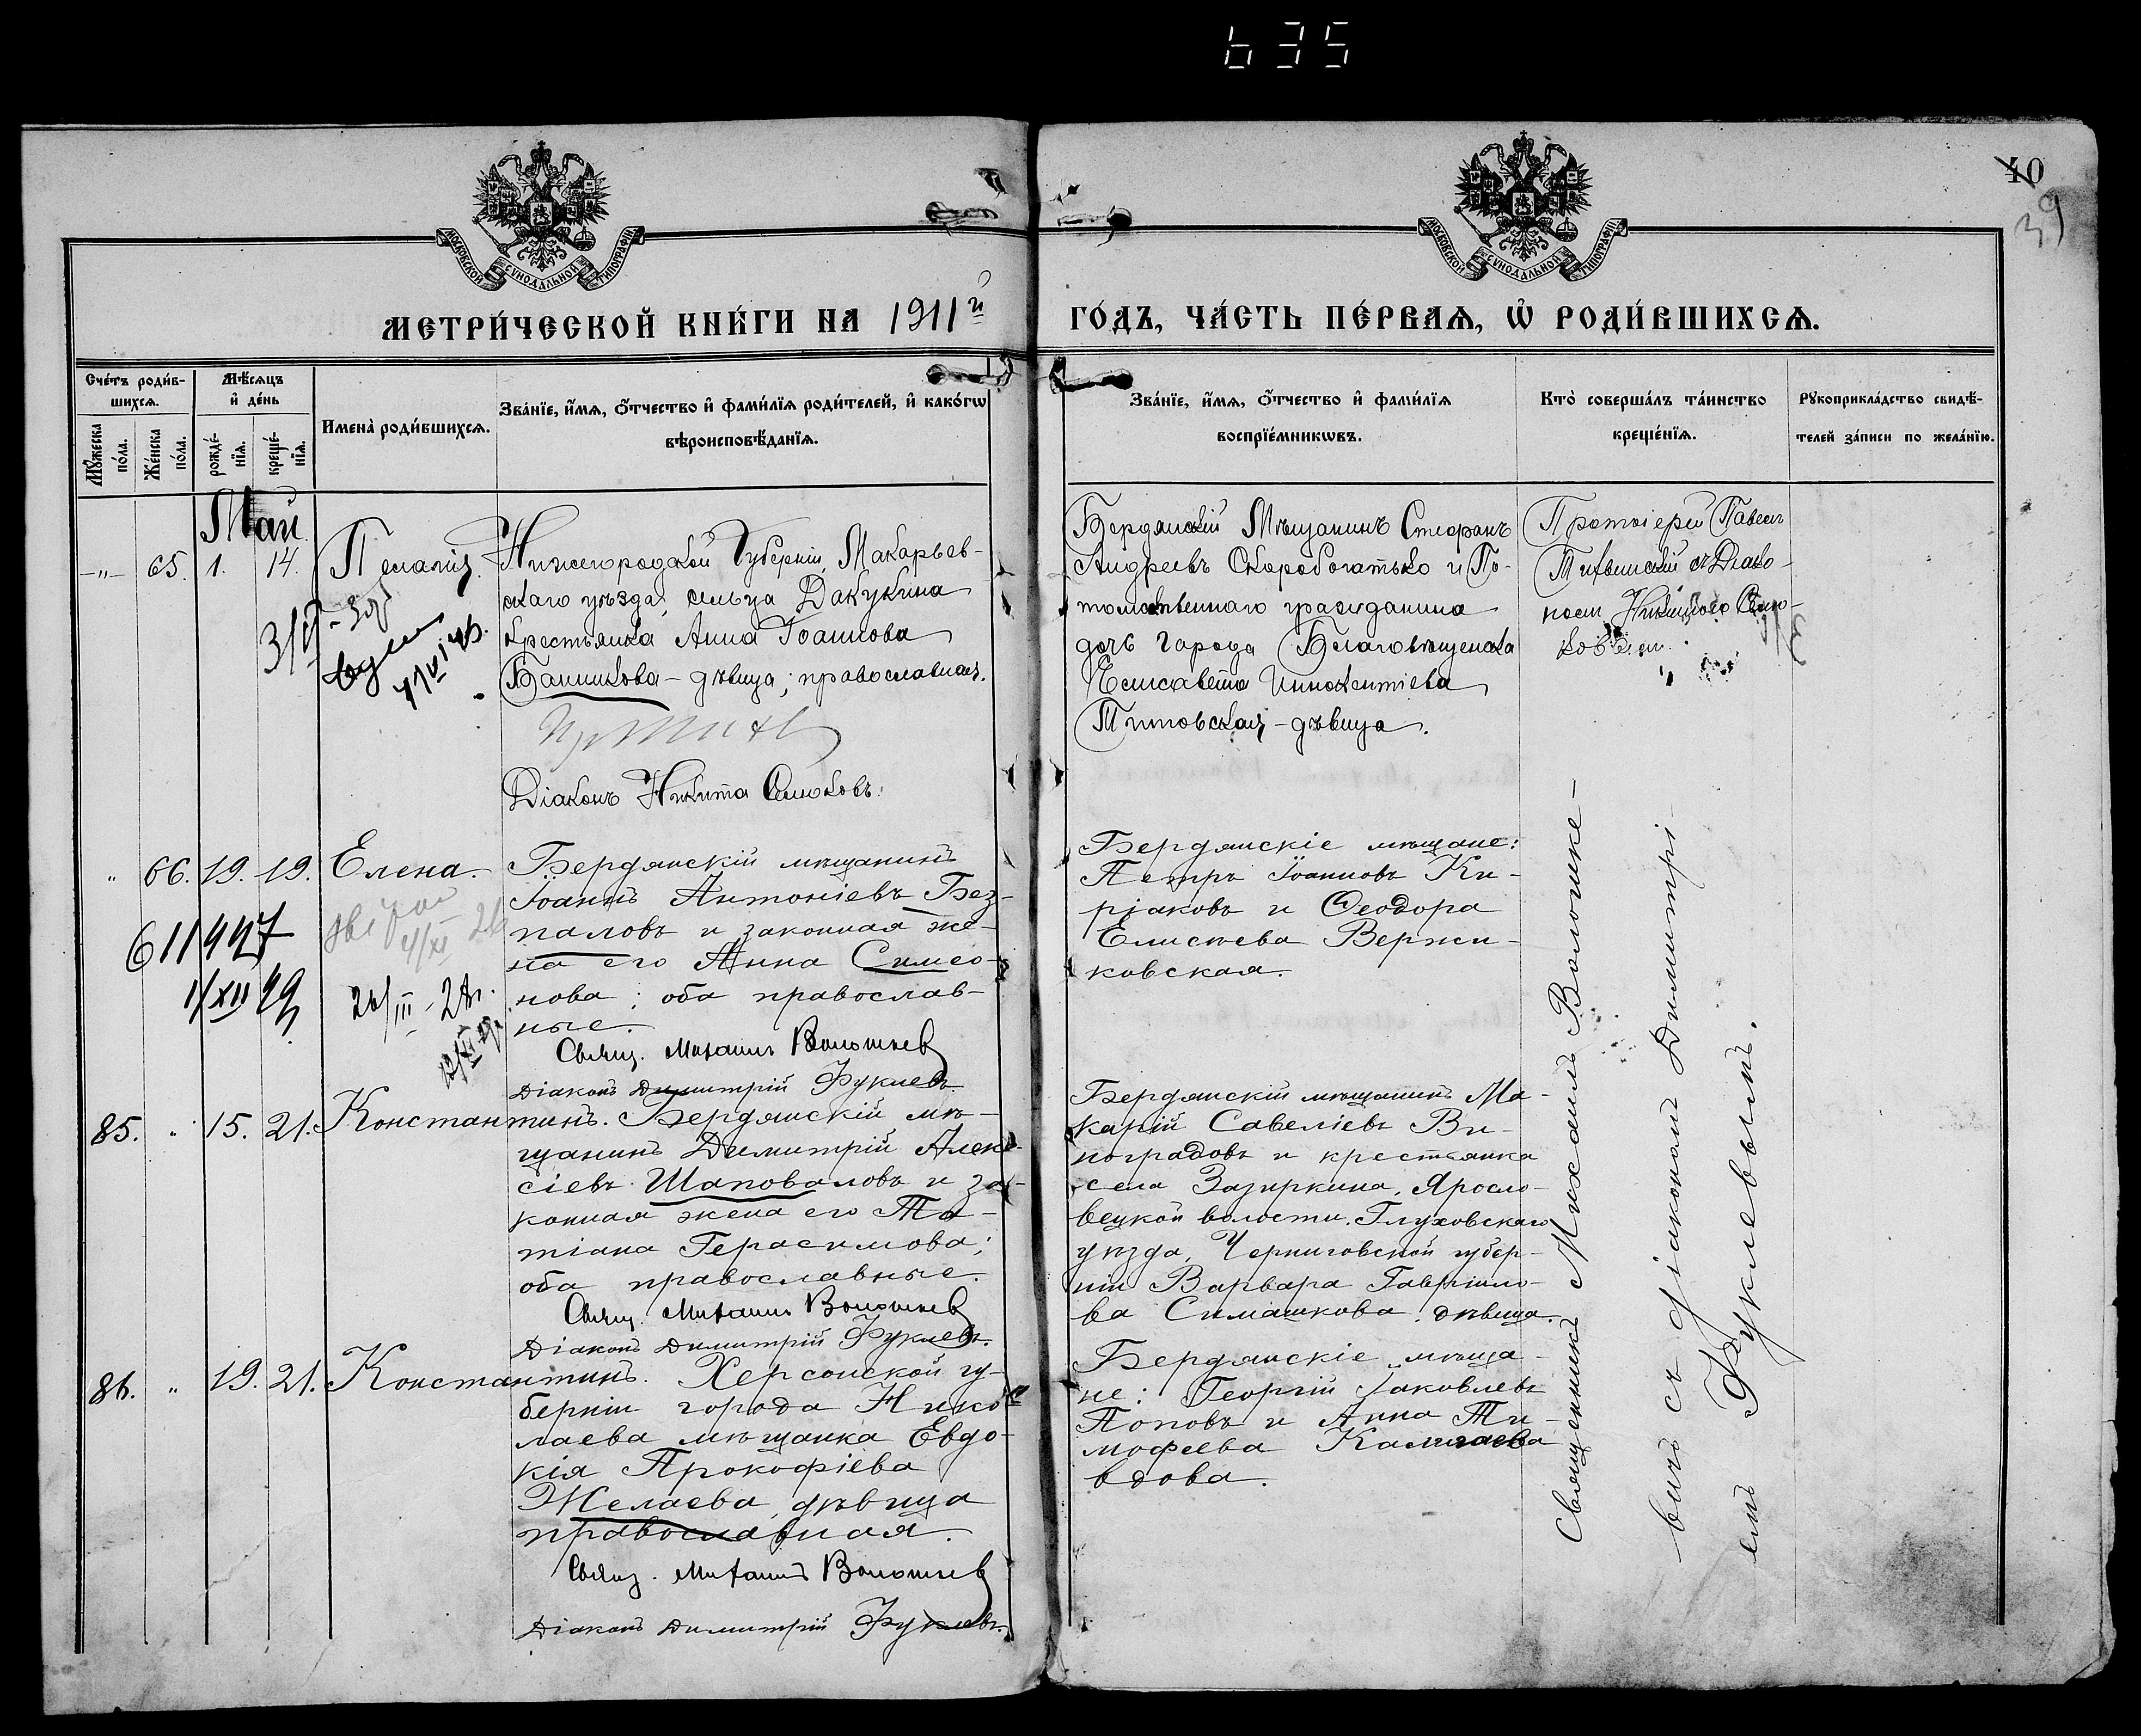 635
40
39
МОСКОВСКОЙ СѴНОДАЛЬНОЙ ТИПОГРАФІИ
МОСКОВСКОЙ СѴНОДАЛЬНОЙ ТИПОГРАФІИ
МЕТРИ́ЧЕСКОЙ КНИ́ГИ НА 1911й
ГО́ДЪ, ЧА́СТЬ ПЕ́РВАѦ, Ѡ҆ РОДИ́ВШИХСѦ.
Сче́тъ роди́в-
шихсѧ.
Мѣ́сѧцъ
и҆ де́нь
Мꙋ́жеска
по́ла.
Же́нска
по́ла.
рожде́-
нїѧ.
креще́-
нїѧ.
Имена̀ роди́вшихсѧ.
Зва́нїе, и҆́мѧ, ѻ҆́тчество и҆ фами́лїѧ роди́телей, и҆ како́гѡ
вѣроисповѣ́данїѧ.
Зва́нїе, и҆́мѧ, ѻ҆́тчество и҆ фами́лїѧ
воспрїе́мникѡвъ.
Кто̀ соверша́лъ та́инство
креще́нїѧ.
Рꙋкоприкла́дство свидѣ́-
телей за́писи по жела́нїю.
Май
-"- 65. 1. 14. Пелагія.
Нижегородской Губерніи, Макарьев-
скаго уѣзда, сельца Дакукина
крестьянка Анна Іоаннова
Банникова - дѣвица; православная.
Діаконъ Никита Слюковъ.
Бердянскій Мѣщанинъ Стефанъ
Андреевъ Скоробогатько и По-
томственнаго гражданина
дочь города Благовѣщенска
Елисавета Иннокентіева
Титовская - дѣвица.
Протоіерей Павелъ
Тихвинскій съ Діако-
номъ Никитою Слю-
ковымъ.
" 66. 19. 19. Елена.
Бердянскій мѣщанинъ
Іоаннъ Антоніевъ Без-
паловъ и законная же-
на его Анна Симео-
нова; оба православ-
ные.
Свящ. Михаилъ Волошкев
Діаконъ Димитрій Фуклевъ.
611947
1/XII 49
26/III - 28г.
Бердянскіе мѣщане:
Петръ Іоанновъ Ки-
ріаковъ и Ѳеодора
Елисѣева Вержи-
ковская.
85. " 15. 21. Константинъ.
Бердянскій мѣ-
щанинъ Димитрій Алек-
сіевъ Шаповаловъ и за-
конная жена его Та-
тіана Герасимова;
оба православные.
Свящ. Михаилъ Волошкев
Діаконъ Димитрій Фуклевъ.
Бердянскій мѣщанинъ Ма-
карій Савеліевъ Ви-
ноградовъ и крестьянка
села Зазиркина, Яросло-
вецкой волости, Глуховскаго
уѣзда, Черниговской губер-
ніи Варвара Гавріило-
ва Симашкова, дѣвица.
86. " 19. 21. Константинъ.
Херсонской гу-
берніи города Нико-
лаева мѣщанка Евдо-
кія Прокофіева
Желаева, дѣвица
православная.
Свящ. Михаилъ Волошкев
Діаконъ Димитрій Фуклевъ.
Бердянскіе мѣща-
не: Георгій Іаковлевъ
Поповъ и Анна Ти-
мофеева
вдова.
Священникъ Михаилъ Волошке-
вичъ съ діакономъ Димитрі-
емъ Фуклевымъ.